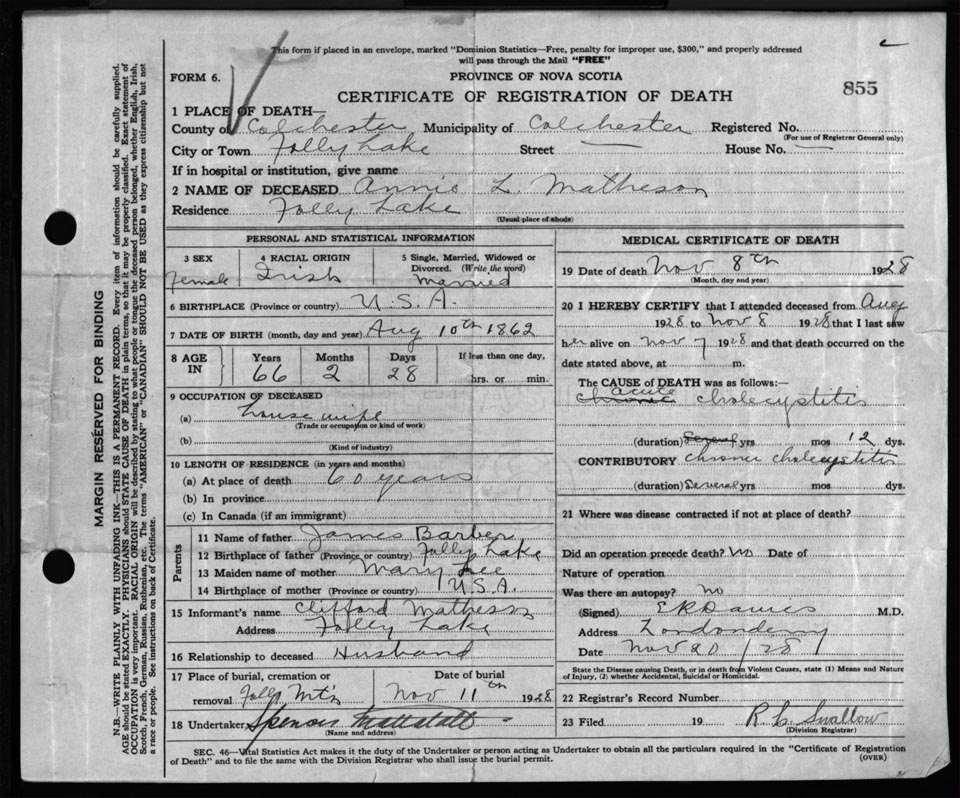 This form if placed in an envelope, marked "Dominion Statistics—Free, penalty for improper use, $300," and properly addressed
will pass through the Mail "FREE"
FORM 6.
PROVINCE OF NOVA SCOTIA
CERTIFICATE OF REGISTRATION OF DEATH
855
1 PLACE OF DEATH—
County of Colchester Municipality of Colchester Registered No.
(For use of Registrar General only)
City or Town Folly Lake Street — House No. —
If in hospital or institution, give name
2 NAME OF DECEASED Annie L. Matheson
Residence Folly Lake
(Usual place of abode)
PERSONAL AND STATISTICAL INFORMATION
3 SEX female
4 RACIAL ORIGIN Irish
5 Single, Married, Widowed or Divorced. (Write the word) Married
6 BIRTHPLACE (Province or country) U.S.A.
7 DATE OF BIRTH (month, day and year) Aug 10th 1862
8 AGE IN Years Months Days If less than one day,
66 2 28 hrs. or min.
9 OCCUPATION OF DECEASED
(a) house wife
(Trade or occupation or kind of work)
(b)
(Kind of industry)
10 LENGTH OF RESIDENCE (in years and months)
(a) At place of death 60 years
(b) In province
(c) In Canada (if an immigrant)
Parents
11 Name of father James Barber
12 Birthplace of father (Province or country) Folly Lake
13 Maiden name of mother Mary Lee
14 Birthplace of mother (Province or country) U.S.A.
15 Informant's name Clifford Matheson
Address Folly Lake
16 Relationship to deceased Husband
17 Place of burial, cremation or removal Folly Mt'n
Date of burial Nov 11th 1928
18 Undertaker Spencer
(Name and address)
MEDICAL CERTIFICATE OF DEATH
19 Date of death Nov 8th 1928
(Month, day and year)
20 I HEREBY CERTIFY that I attended deceased from Aug
1928 to Nov 8 1928 that I last saw
her alive on Nov 7 1928 and that death occurred on the
date stated above, at m.
The CAUSE OF DEATH was as follows:—
acute
chronic cholecystitis
(duration) Several yrs mos 12 dys.
CONTRIBUTORY chronic cholecystitis
(duration) Several yrs mos dys.
21 Where was disease contracted if not at place of death?
Did an operation precede death? No Date of
Nature of operation
Was there an autopsy? no
(Signed) E R Davies M.D.
Address Londonderry
Date Nov 20/28
State the Disease causing Death, or in death from Violent Causes, state (1) Means and Nature
of Injury, (2) whether Accidental, Suicidal or Homicidal.
22 Registrar's Record Number
23 Filed 19 R. C. Swallow
(Division Registrar)
SEC. 46—Vital Statistics Act makes it the duty of the Undertaker or person acting as Undertaker to obtain all the particulars required in the "Certificate of Registration
of Death" and to file the same with the Division Registrar who shall issue the burial permit.
(OVER)
MARGIN RESERVED FOR BINDING
N.B.—WRITE PLAINLY WITH UNFADING INK—THIS IS A PERMANENT RECORD. Every item of information should be carefully supplied.
AGE should be stated EXACTLY. PHYSICIANS should STATE CAUSE OF DEATH in plain terms, so that it may be properly classified. Exact statement of
OCCUPATION is very important. RACIAL ORIGIN will be described by stating to what people or tongue the deceased person belonged, whether English, Irish,
Scotch, French, German, Russian, Ruthenian, etc. The terms "AMERICAN" or "CANADIAN" SHOULD NOT BE USED as they express citizenship but not
a race or people. See instructions on back of Certificate.